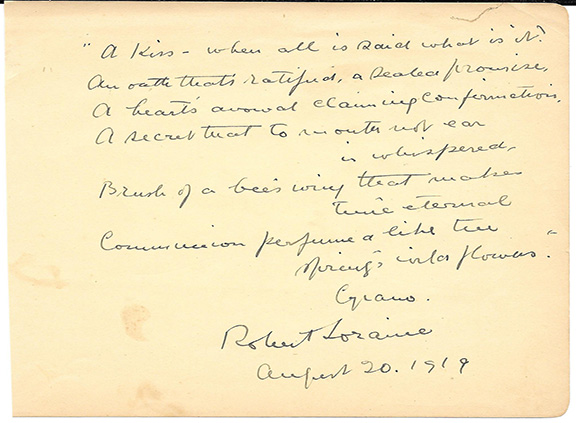 "A Kiss - when all is said what is it?
An oath that's ratified, a sealed promise,
A heart's avowal claiming confirmation,
A secret that to mouth not ear
is whispered,
Brush of a bee's wing that makes
time eternal
Communion perfumed like the
spring's wild flowers."
Cyrano.
Robert Loraine
August 20. 1919